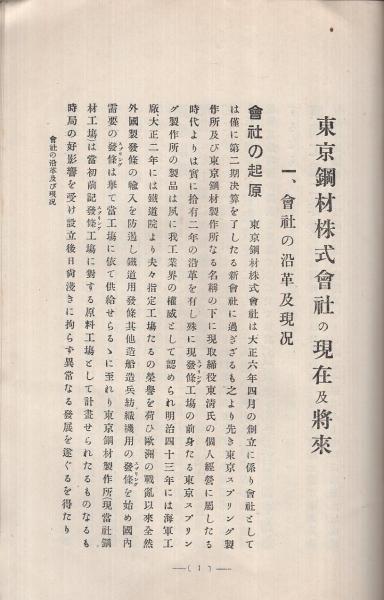 東京鋼材株式會社の現在及將來
一、會社の沿革及現況
會社の起原　東京鋼材株式會社は大正六年四月の創立に係り會社として
は僅に第二期決算を了したる新會社に過ぎざるも之より先き東京スプリング製
作所及び東京鋼材製作所なる名稱の下に現取締役東淸氏の個人經營に屬したる
時代よりは實に拾有二年の沿革を有し殊に現發條工場の前身たる東京スプリン
グ製作所の製品は夙に我工業界の權威として認められ明治四十三年には海軍工
廠大正二年には鐵道院より夫々指定工場たるの榮譽を荷ひ歐洲の戰亂以來全然
外國製發條の輸入を防遏し鐵道用發條其他造船造兵紡織機用の發條を始め國內
需要の發條は擧て當工場に依て供給せらるゝに至れり東京鋼材製作所(現當社鋼
材工場)は當初前記發條工場に對する原料工場として計畫せられたるものなるも
時局の好影響を受け設立後日尙淺きに拘らず異常なる發展を遂ぐるを得たり
會社の沿革及び現況
—( 1 )—